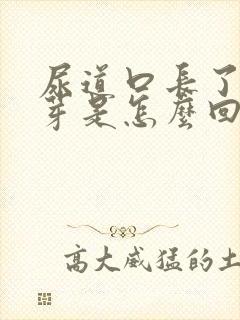 尿道口長了
芽是怎麼回
高大威猛的土